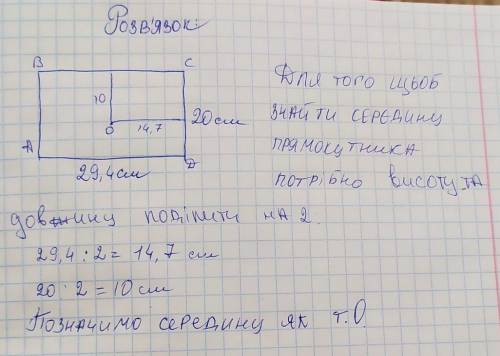 Розв'язок:
B
C
10
O
14,7
20см
A
D
29,4см
Для того щьоб
знайти середину
прямокутника
потрібно висоту та
довжину поділити на 2.
29,4 : 2 = 14,7 см
20 : 2 = 10 см
Позначимо середину як т. О